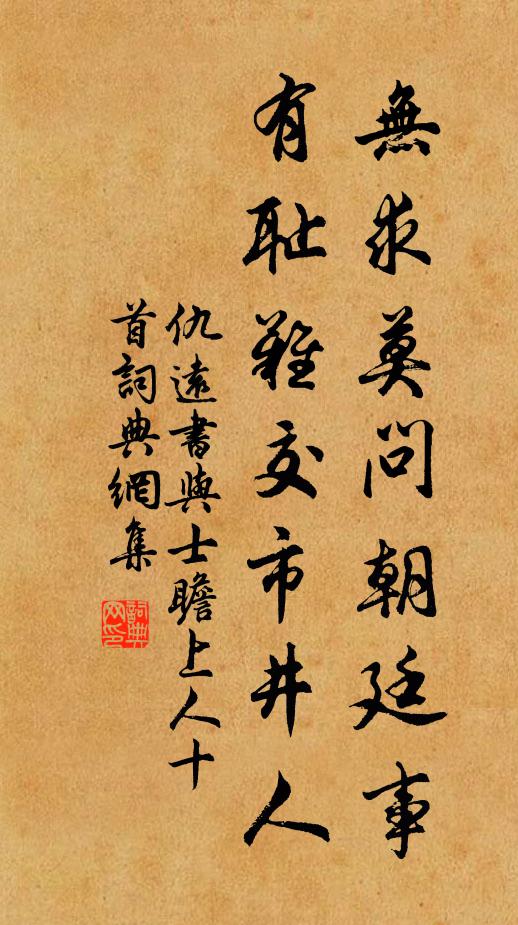 無求莫問朝廷事
有耻難交市井人
仇遠書與士瞻上人十
首詞典網集
詞典
网印